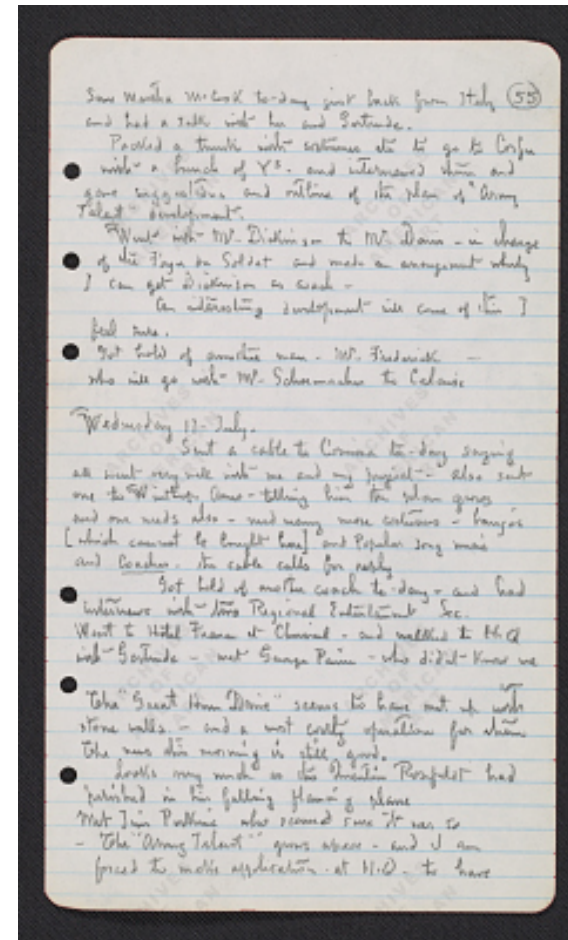 Saw Martha McCook to-day just back from Italy (55)
and had a talk with her and Gertrude.
Packed a trunk with costumes etc to go to Corfu
with a bunch of Ys. and interviewed them and
gave suggestions and outline of the plan of "Army
Talent" development.
Went with Mr. Dickinson to Mr. Davis - in charge
of the Foyer du Soldat and made an arrangement whereby
I can get Dickinson as coach -
An interesting development will come of this I
feel sure.
Got hold of another man - Mr. Frederick -
who will go with Mr. Schoemacher to
Wednesday 17 - July.
Sent a cable to to-day saying
all went very well with me and my - also sent
one to Winthrop Ames - telling him the show grows
and one needs also - need many more costumes -
[which cannot be bought here] and Popular song music
and Coaches. the cable calls for reply
Got hold of another coach to-day - and had
interviews with two Regional Entertainment Sec.
Went to Hotel France et Choiseul - and walked to H.Q
with Gertrude - met George Paine - who didn't know me
"The Great Hun Drive" seems to have met with
stone walls. - and a most costly operation for them
the news this morning is still good.
Looks very much as tho Quentin Roosevelt had
perished in his falling flaming plane
Met Jim who seemed sure it was so
- The "Army Talent" grows apace - and I am
forced to make application - at H.Q. - to have